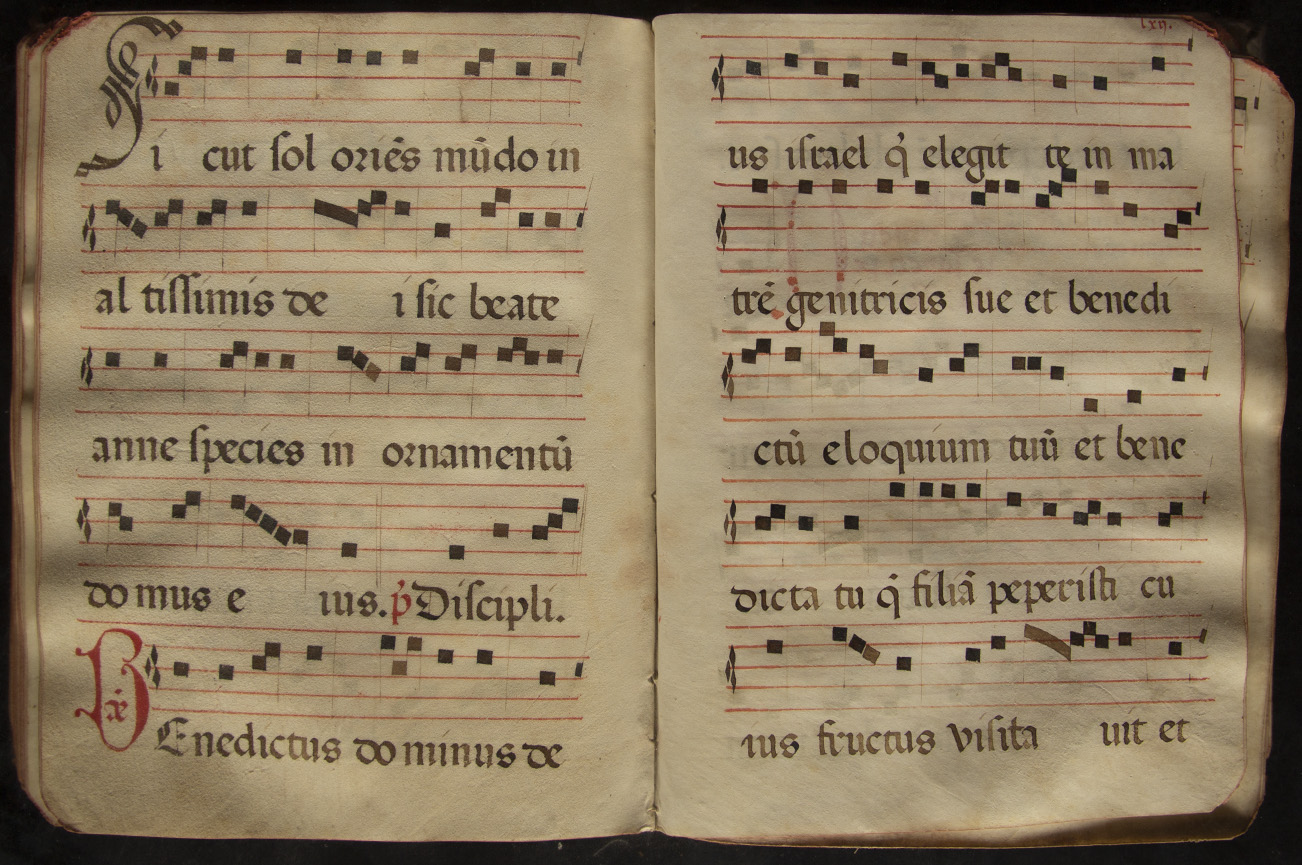 Si cut sol oriẽs mũdo in
al tissimis de i sic beate
anne species in ornamentũ
do mus e ius. p̃ Discipli.
Rx̃ BEnedictus do minus de
lxij.
us israel q̃ elegit te in ma
trẽ genitricis sue et benedi
ctũ eloquium tuũ et bene
dicta tu q̃ filiã peperisti cu
ius fructus visita uit et